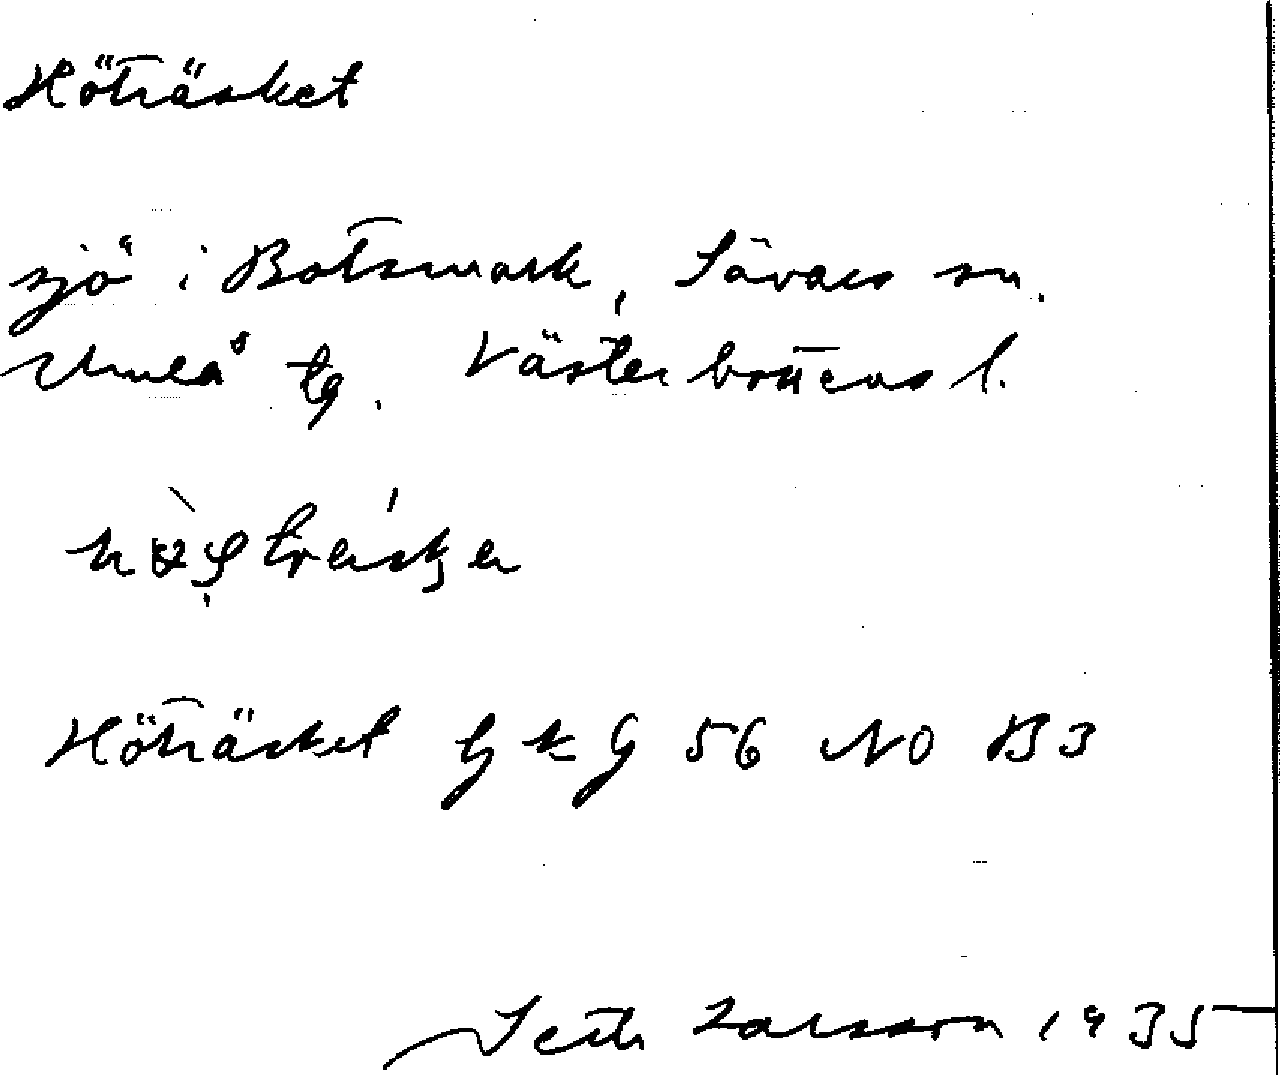 Höträsket
sjö i Botsmark, Sävars sn.
Umeå tg. Västerbottens l.
Höträsket GKG 56 NO B3
Seth Larsson 1935